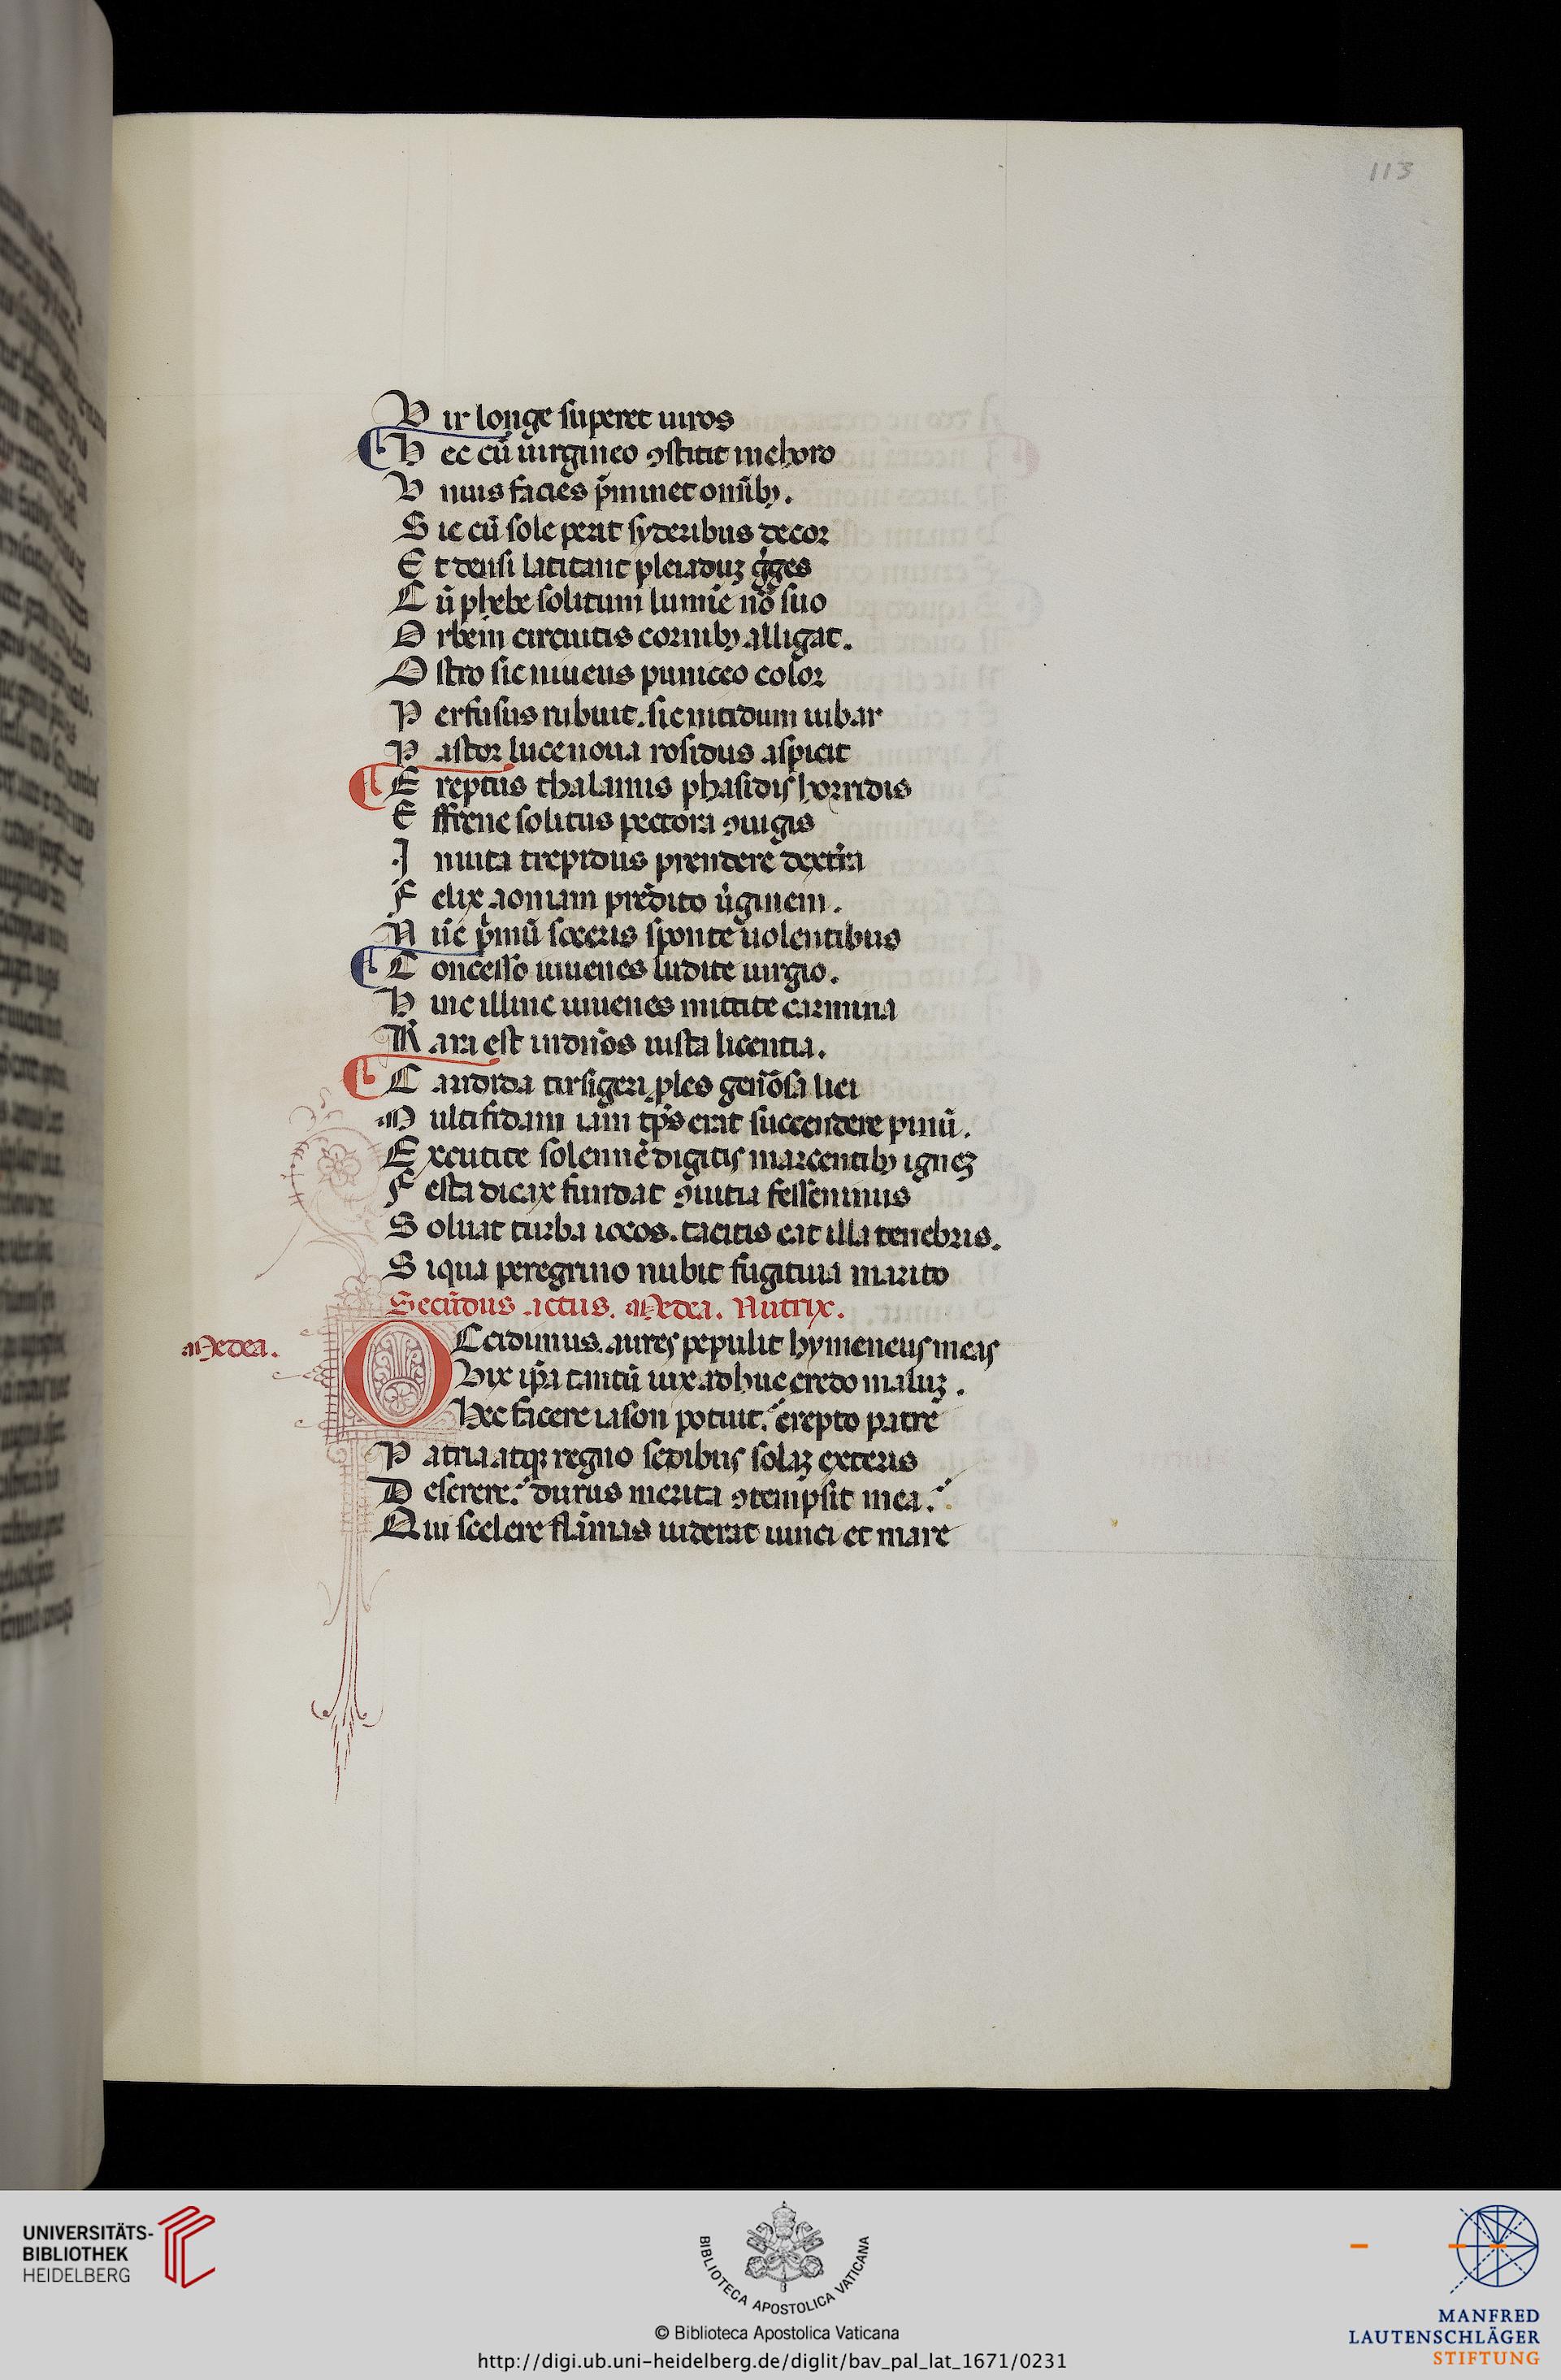 113
Vir longe superet uiros
Hec cū uirgineo ꝯstitit in choro
Vnius facies p̄minet omīb9.
Sic cū sole perit syderibus decor
Et densi latitant pleiaduꝫ gͥges
Cū phebe solitum lumīe nō suo
Orbem circuitis cornib9 alligat.
Ostro sic niueus puniceo color
Perfusus rubuit. sic nitidum iubar
Pastor luce noua rosidus aspicit
Ereptus thalamis phasidis horridis
Effrene solitus pectora ꝯiugis
Inuita trepidus prendere dextᷓa
Felix aoniam predito ūginem.
Nūc pͥmū soceris sponte uolentibus
Concesso iuuenes ludite iurgio.
Hinc illinc iuuenes mittite carmina
Rara est in dn̄os iusta licentia.
Candida tirsigeri ꝓles gen̄osa liei
Multifidam iam tp̄s erat succendere pinū.
Excutite solennē digitis marcentib9 igneꝫ
Festa dicax fundat ꝯuitia fessenninus
Soluat turba iocos. tacitis eat illa tenebris.
Siqua peregrino nubit fugitiua marito
Secūdus actus. Medea. Nutrix.
Medea.
OCcidimus. aures pepulit hymeneus meas
Vix ip̄a tantū uix adhuc credo maluꝫ.
Hec facere iason potuit. erepto patre
Patria atqꝫ regno sedibus solaꝫ exteris
Deserere. durus merita ꝯtempsit mea.
Qui scelere flāmas uiderat uinci et mare
UNIVERSITÄTS-
BIBLIOTHEK
HEIDELBERG
BIBLIOTECA APOSTOLICA VATICANA
© Biblioteca Apostolica Vaticana
http://digi.ub.uni-heidelberg.de/diglit/bav_pal_lat_1671/0231
MANFRED
LAUTENSCHLÄGER
STIFTUNG